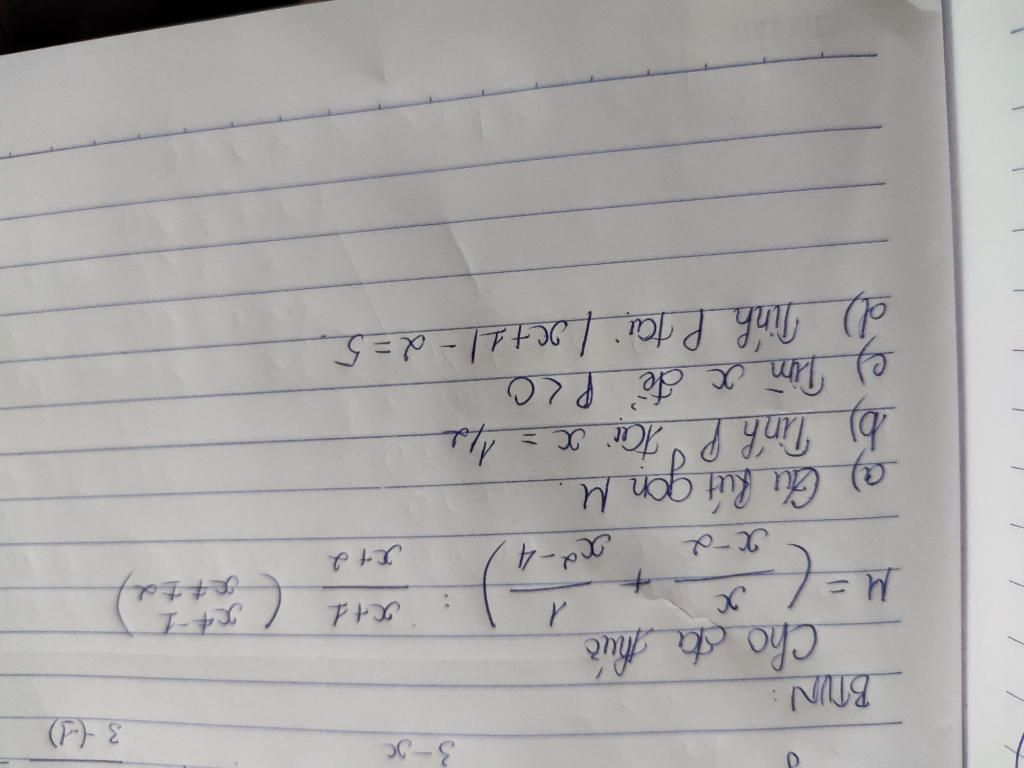 3-x 3-(-1)
BTVN:
Cho đa thức
M = (x/x-2 + 1/x²-4) : x+1/x+2 (x≠-1 x≠±2)
a) Rút gọn M.
b) Tính P tại x = 1/2
c) Tìm x để P<0
d) Tính P tại |x+1|-2=5.